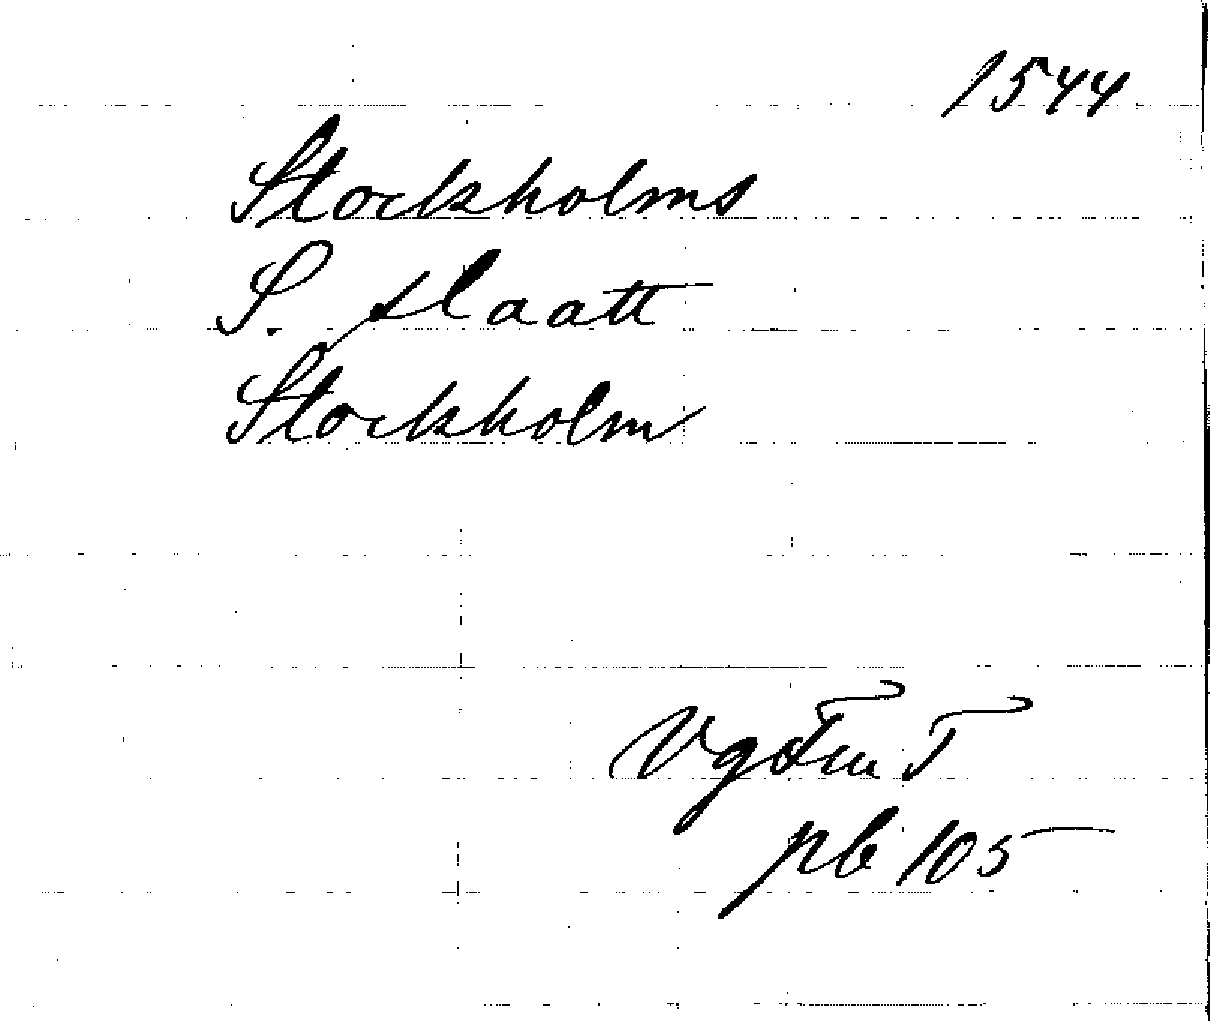 1544
Stockholms
S. slaatt
Stockholm
VgFru T
pb 105